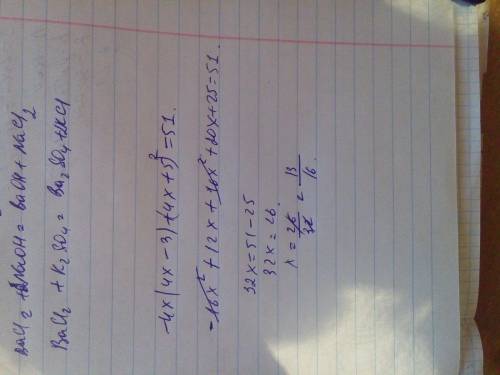 BaCl2 + 2NaOH = BaOH + NaCl2
BaCl2 + K2SO4 = Ba2SO4 + 2KCl
-4x(4x-3)+(4x+5)²=51.
-16x²+12x+16x²+20x+25=51.
32x=51-25
32x=26.
x=26/32=13/16.